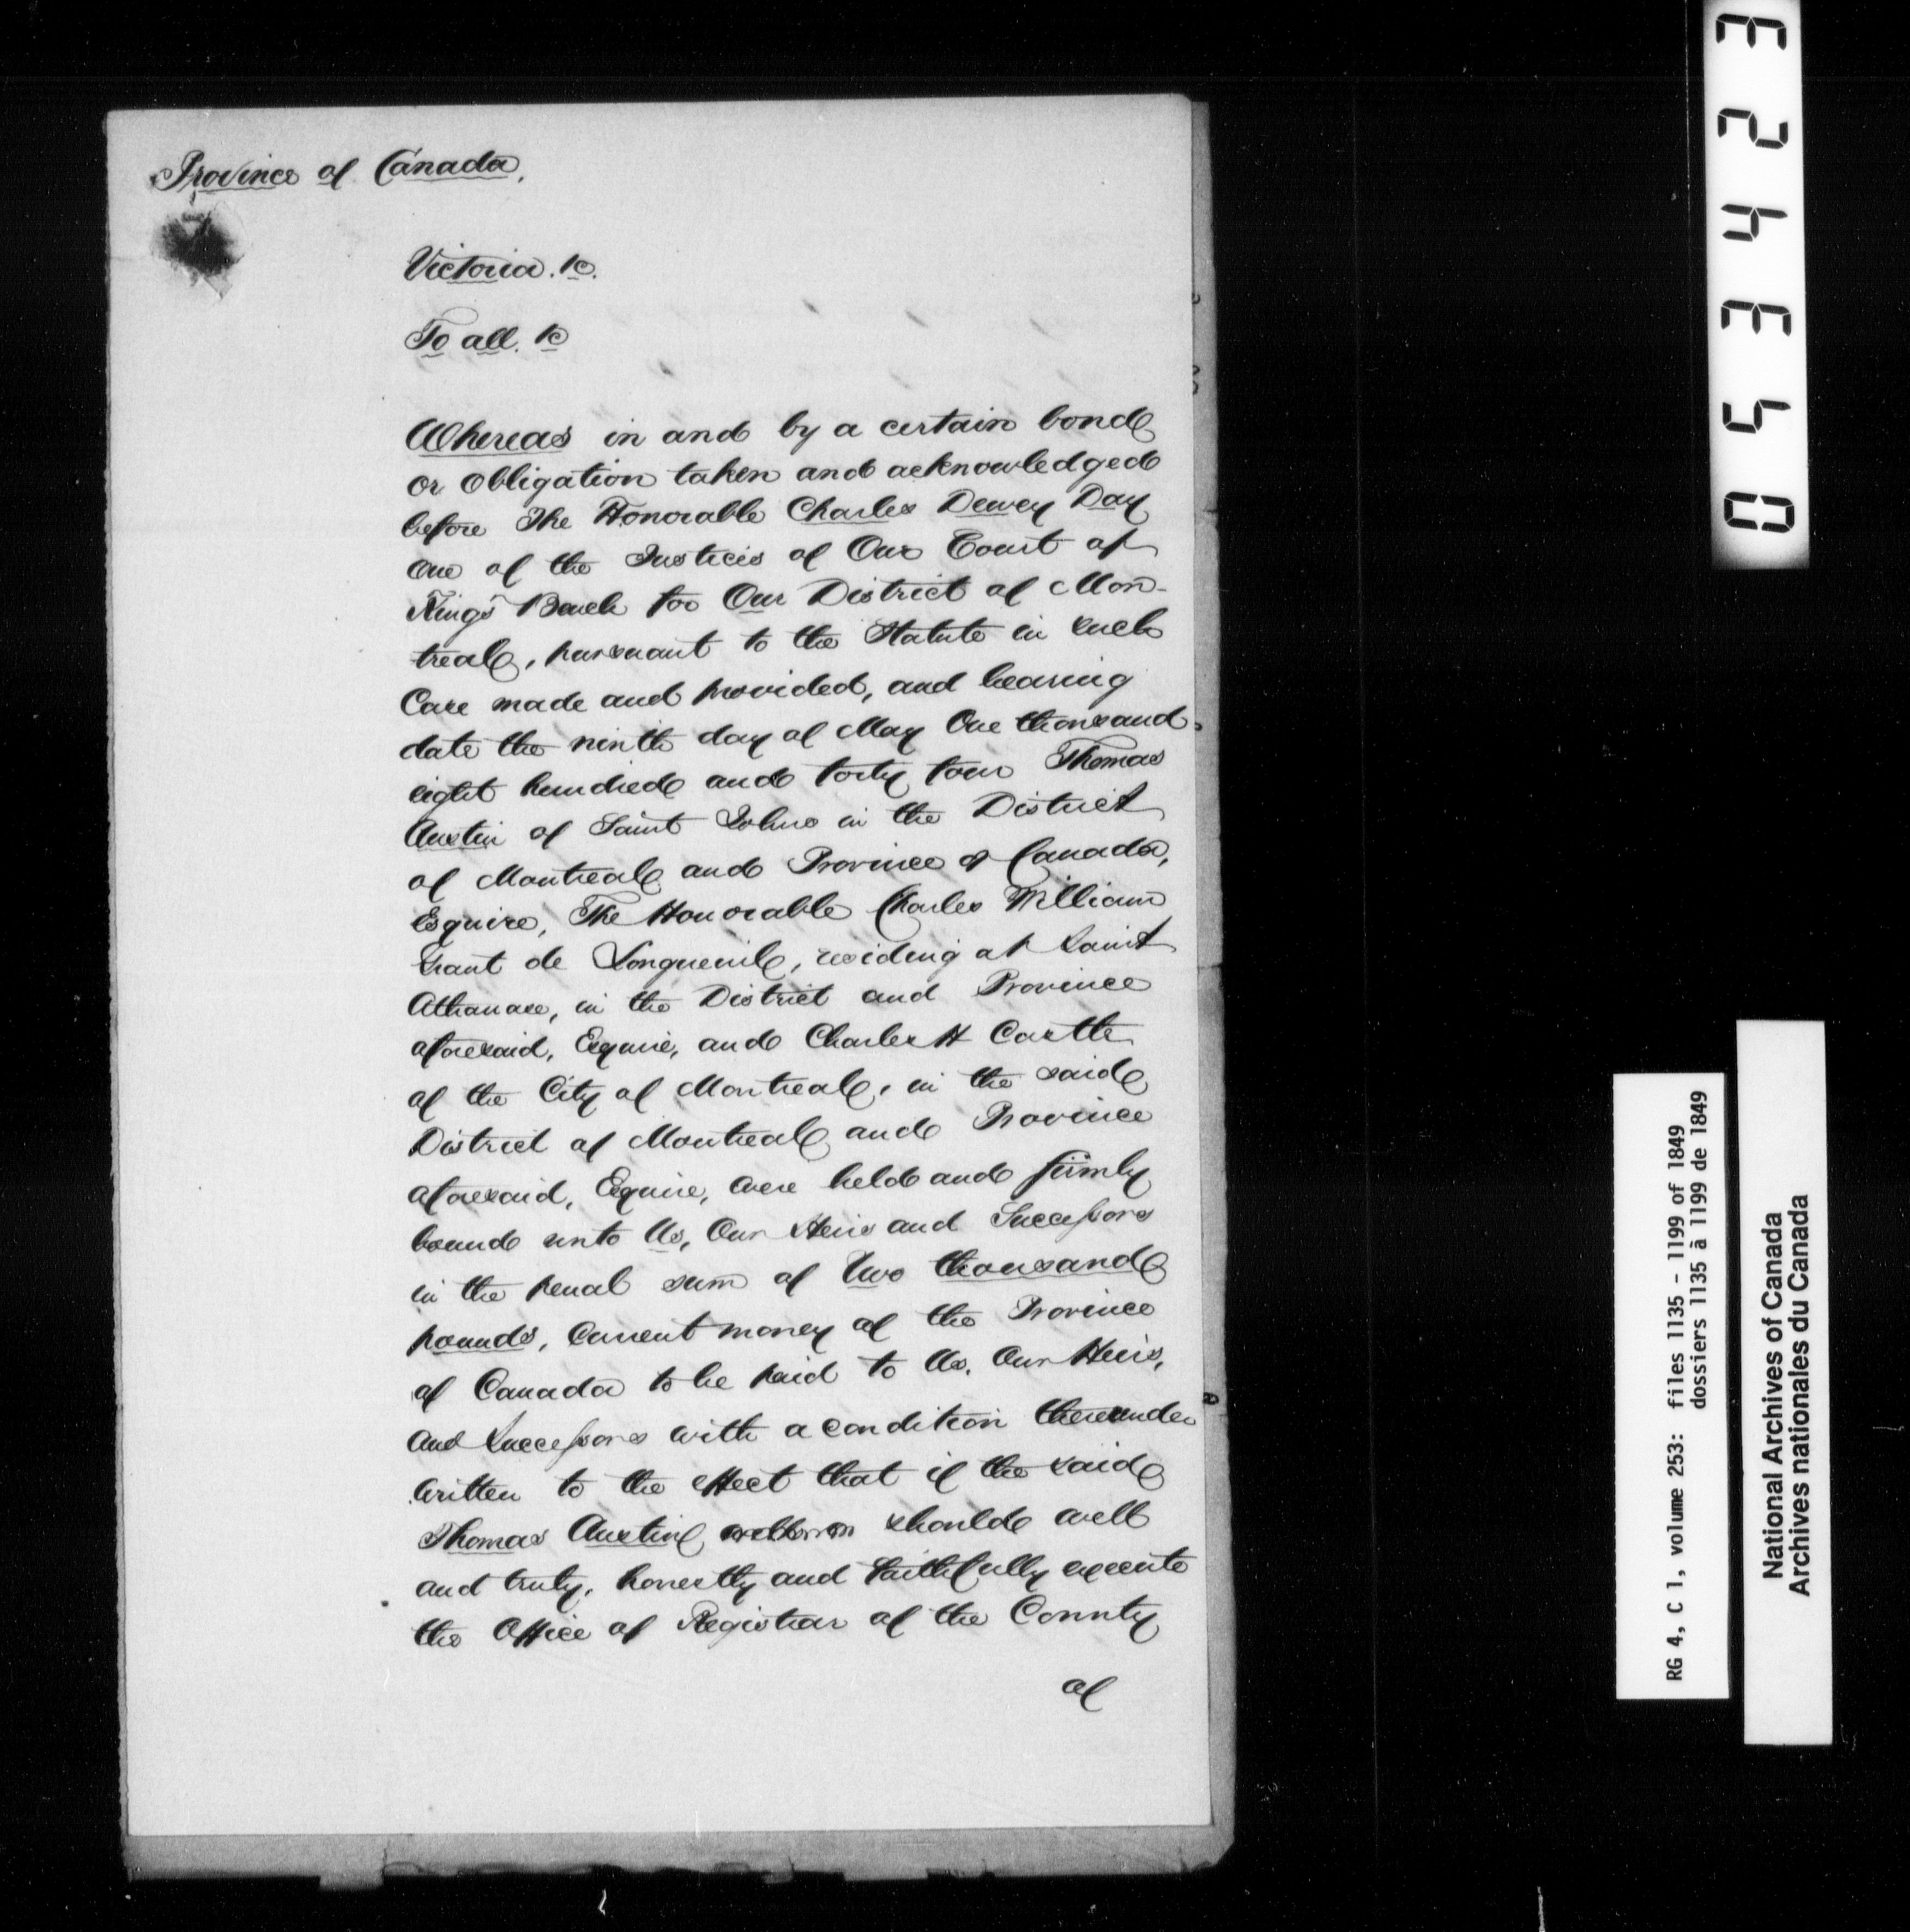 Province of Canada,
Victoria. &c.
To all. &c
Whereas in and by a certain bond
or obligation taken and acknowledged
before The Honorable Charles Dewey Day
one of the Justices of Our Court of
King's Bench for Our District of Mon-
treal, pursuant to the Statute in such
Case made and provided, and bearing
date the ninth day of May One thousand
eight hundred and forty four Thomas
Austin of Saint Johns in the District
of Montreal and Province of Canada,
Esquire, The Honorable Charles William
Grant de Longueuil, residing at Saint
Athanase, in the District and Province
aforesaid, Esquire, and Charles H Castle
of the City of Montreal, in the said
District of Montreal and Province
aforesaid, Esquire, were held and firmly
bound unto Us, Our Heirs and Successors
in the penal sum of two thousand
pounds, current money of the Province
of Canada to be paid to Us, Our Heirs,
and Successors with a condition thereunder
written to the effect that if the said
Thomas Austin should well
and truly, honestly and faithfully execute
the Office of Registrar of the County
of
053423
RG 4, C 1, volume 253: files 1135 - 1199 of 1849
dossiers 1135 à 1199 de 1849
National Archives of Canada
Archives nationales du Canada